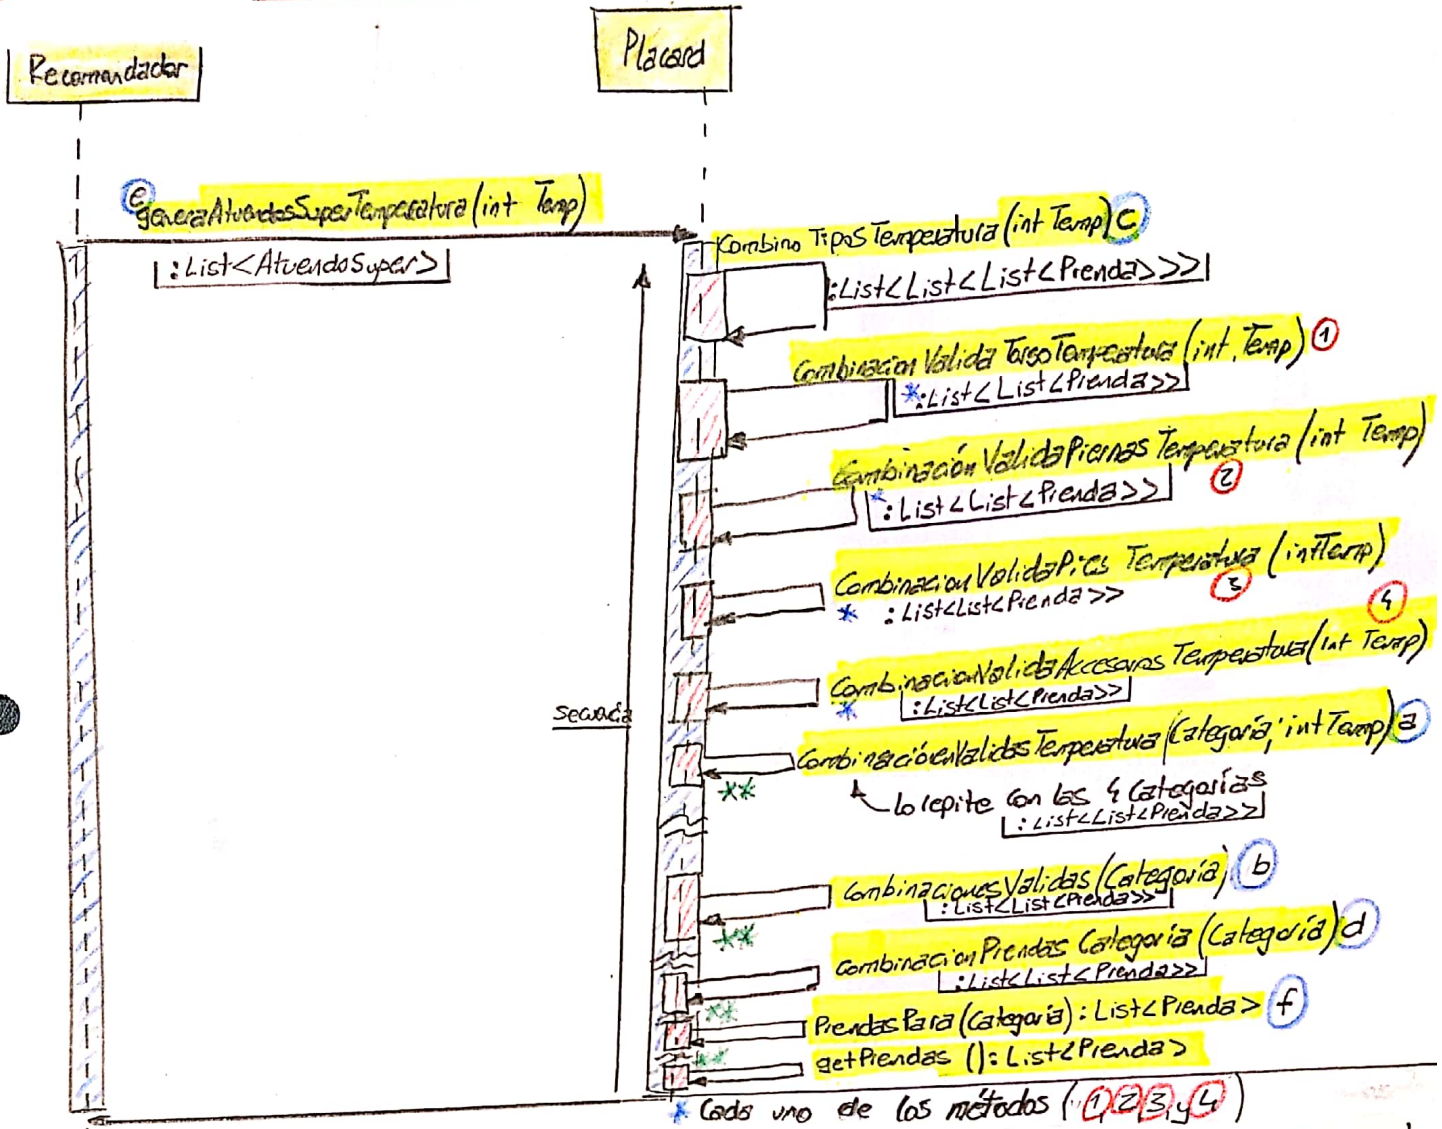 Recomendador
Placard
e
generaAtuendosSuperTemperatura (int Temp)
:List<AtuendoSuper>
Combino Tipos Temperatura (int Temp) c
:List<List<List<Prenda>>>
Combinacion Valida TorsoTemperatura (int Temp) 1
*:List<List<Prenda>>
Combinación ValidaPiernas Temperatura (int Temp)
* :List<List<Prenda>> 2
Combinacion ValidaPies Temperatura (int Temp)
* :List<List<Prenda>> 3
4
CombinacionValidaAccesorios Temperatura (int Temp)
* :List<List<Prenda>>
Secuencia
CombinaciónenValidasTemperatura (Categoría, int Temp) a
**
Lo repite con las 4 categorías
:List<List<Prenda>>
CombinacionesValidas (Categoría) b
:List<List<Prenda>>
**
combinacion Prendas Categoria (Categoría) d
:List<List<Prenda>>
**
PrendasPara (Categoria) : List<Prenda> f
**
getPrendas () : List<Prenda>
* Cada uno de los métodos (1,2,3, y 4)